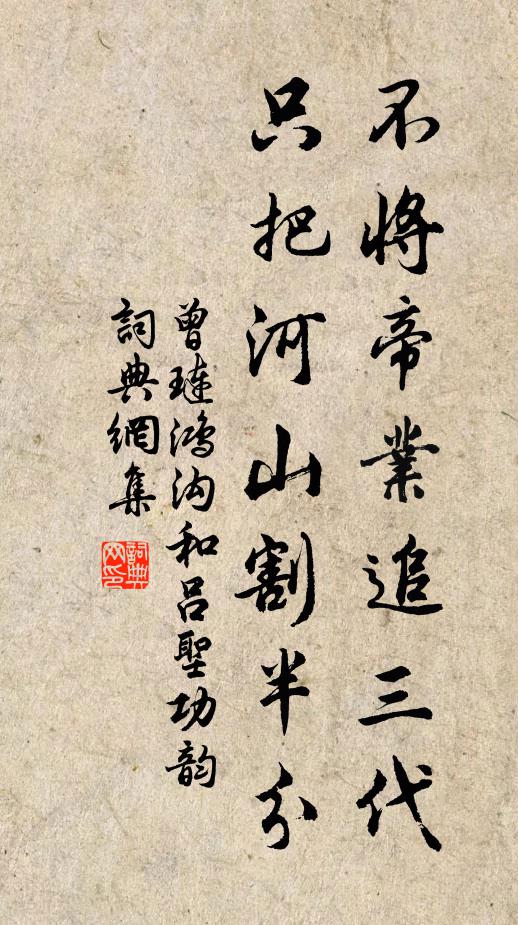 不將帝業追三代
只把河山割半分
曾璉鴻沟和吕聖功韵
詞典網集
詞典
网印